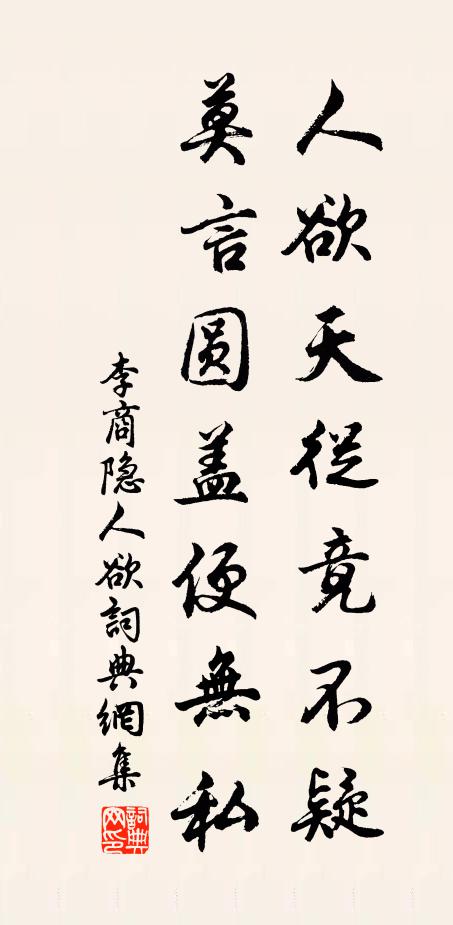 人欲天從竟不疑
莫言圆盖便無私
李商隐人欲詞典網集
詞典網印